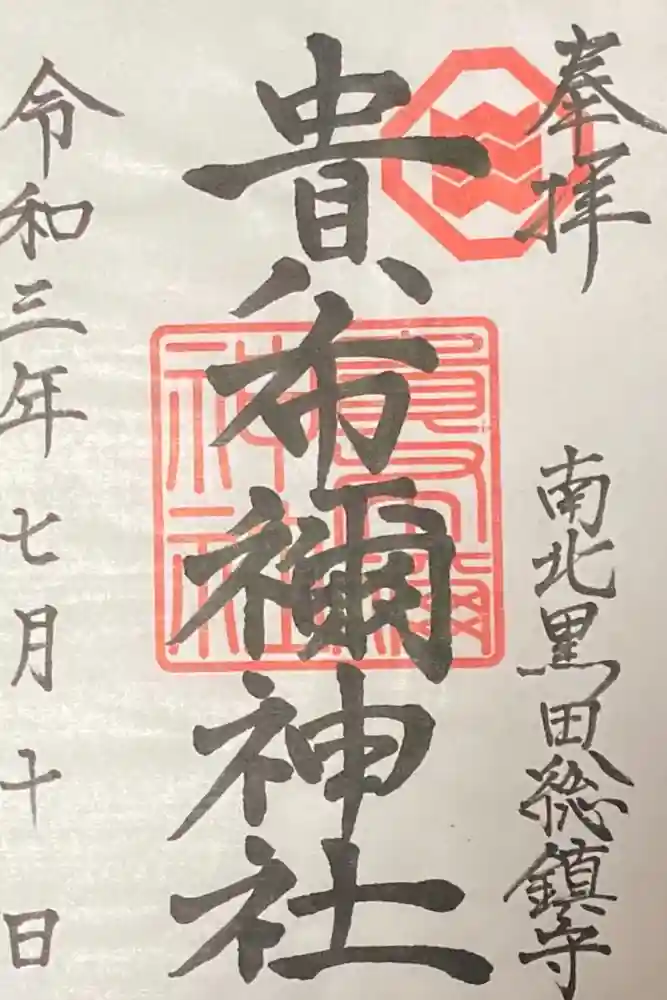 奉拝
南北黒田総鎮守
貴布禰神社
令和三年七月十日